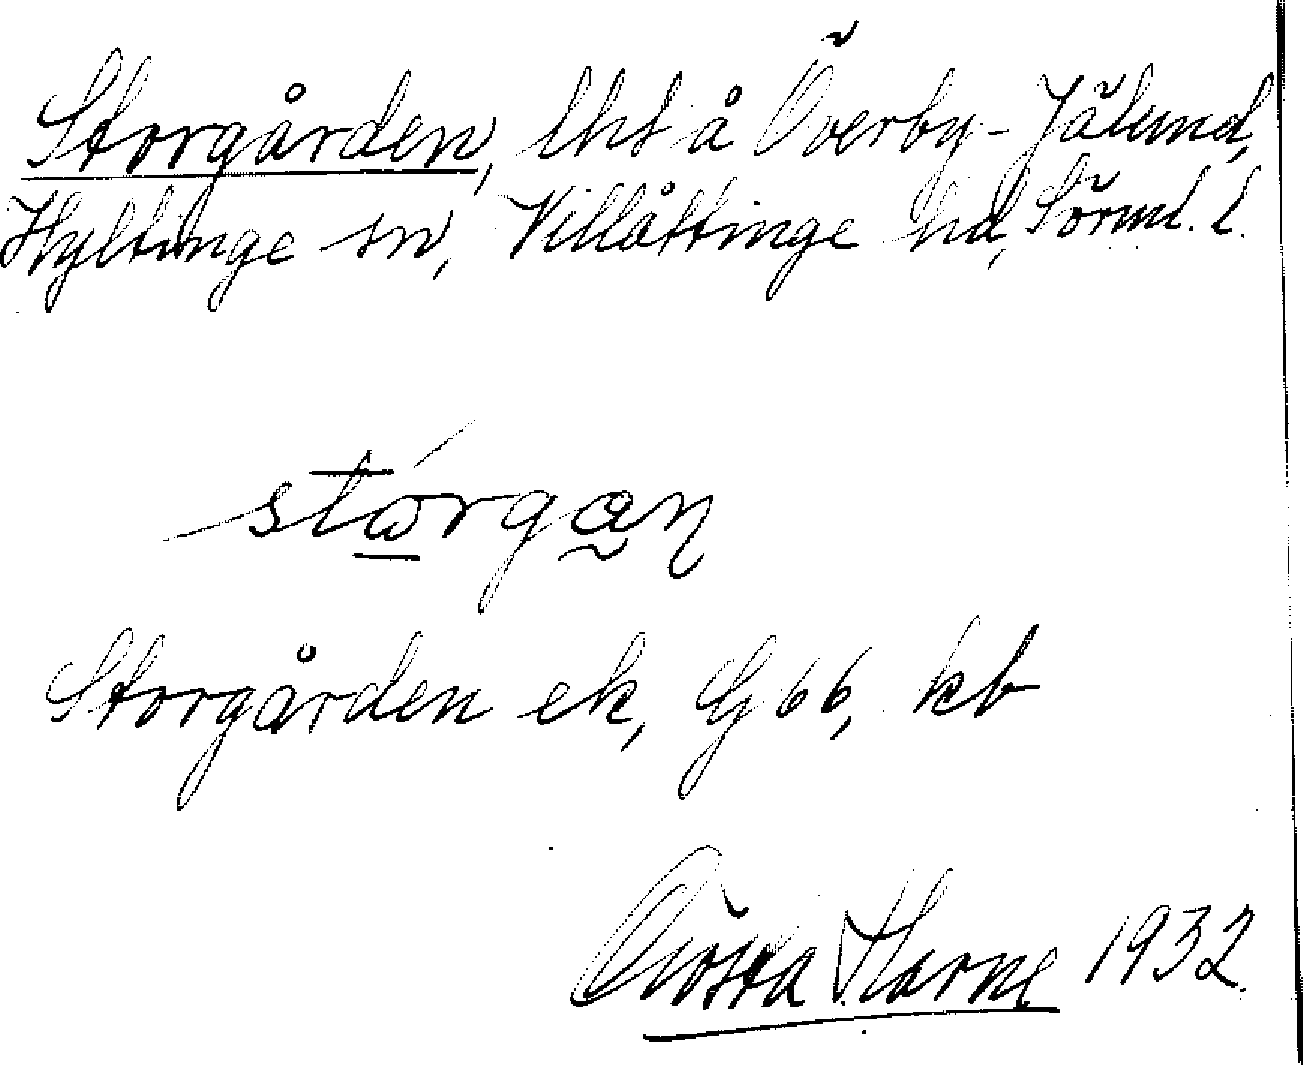 Storgården, lht å Överby-Jälund,
Hyltinge sn, Villåttinge hd, Sörml. l.
stωrgan
Storgården ek, G 66, kb
Harne 1932.